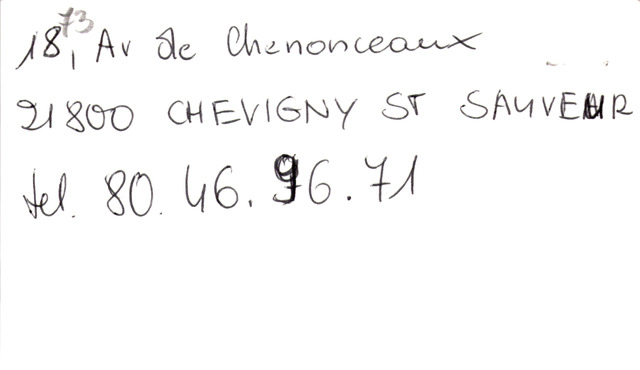 73
18, Av de Chenonceaux
21800 CHEVIGNY ST SAUVEUR
tel. 80. 46. 96. 71